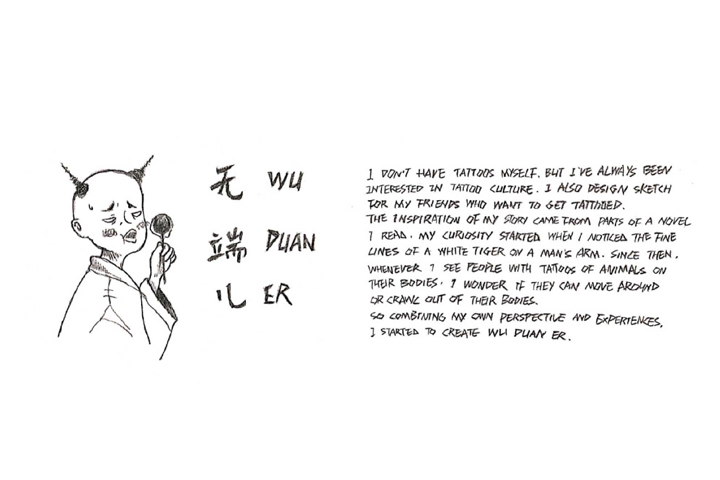 无 WU
端 DUAN
儿 ER
I DON'T HAVE TATTOOS MYSELF. BUT I'VE ALWAYS BEEN
INTERESTED IN TATTOO CULTURE. I ALSO DESIGN SKETCH
FOR MY FRIENDS WHO WANT TO GET TATTOOED.
THE INSPIRATION OF MY STORY CAME FROM PARTS OF A NOVEL
I READ. MY CURIOSITY STARTED WHEN I NOTICED THE FINE
LINES OF A WHITE TIGER ON A MAN'S ARM. SINCE THEN.
WHENEVER I SEE PEOPLE WITH TATOOS OF ANIMALS ON
THEIR BODIES. I WONDER IF THEY CAN MOVE AROUND
OR CRAWL OUT OF THEIR BODIES.
SO COMBINING MY OWN PERSPECTIVE AND EXPERIENCES,
I STARTED TO CREATE WU DUAN ER.